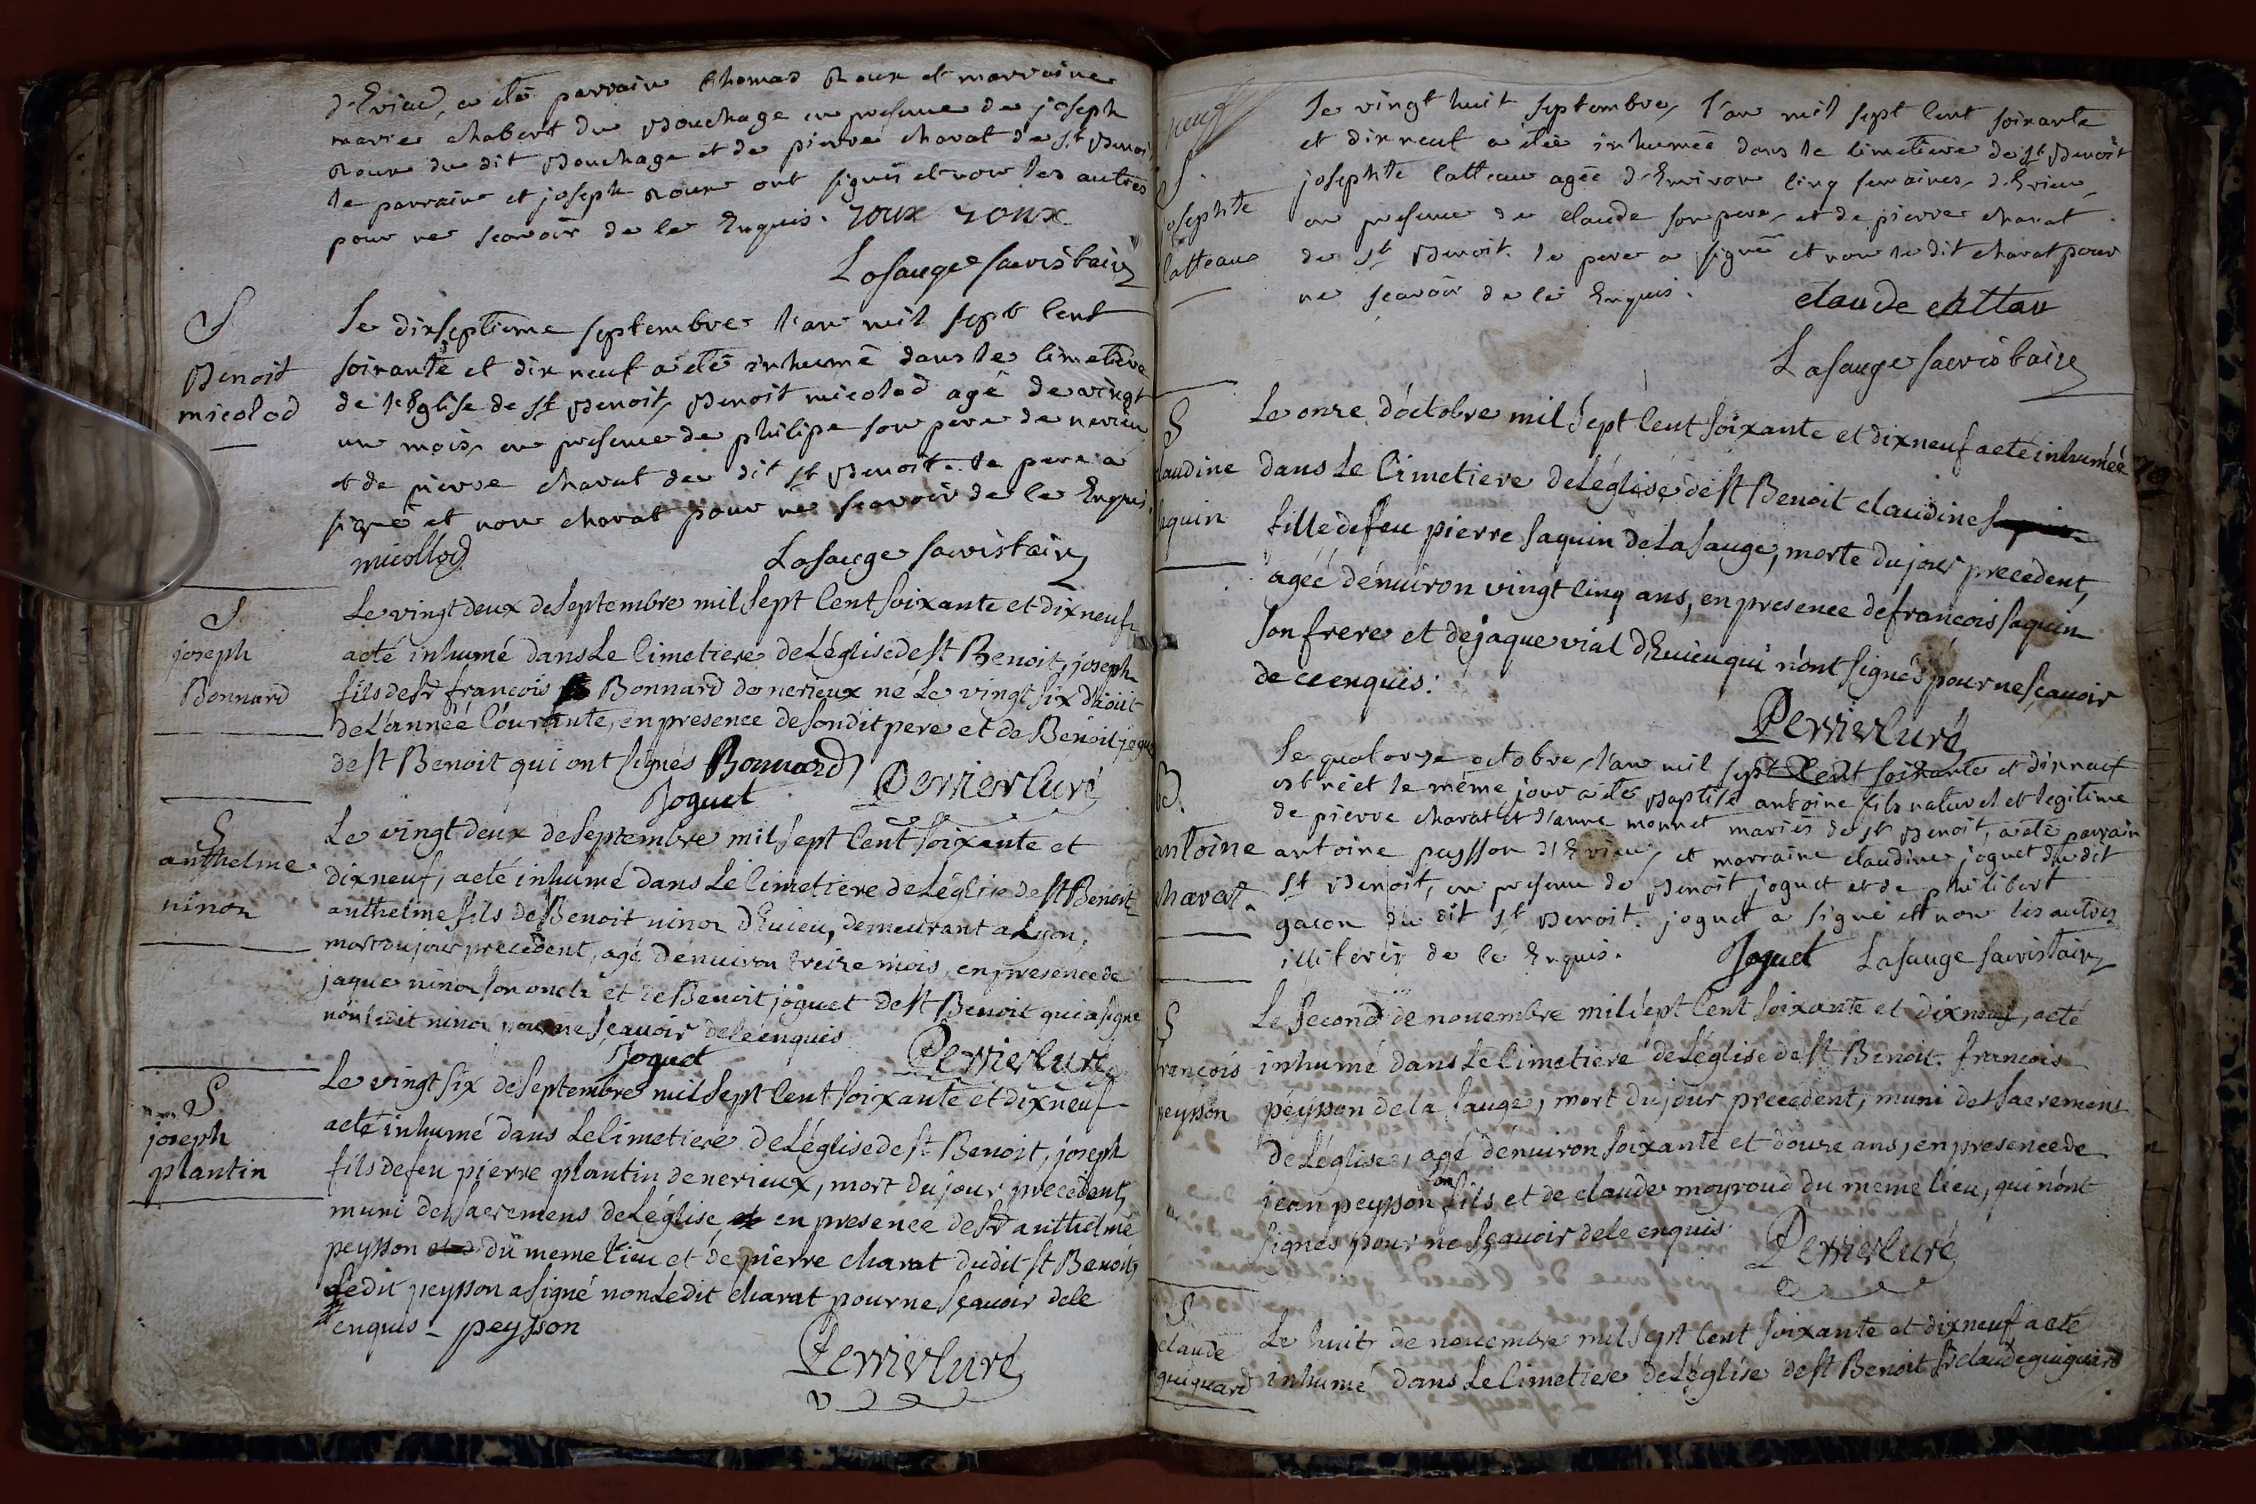 d'Evieu, a été parrain thomas Roux et marraine
marie chabert du Bouchage en presence de joseph
Roux du dit Bouchage et de pierre charat de st Benoit
le parrain et joseph Roux ont signés et non les autres
pour ne scavoir de ce Enquis. roux roux
Lasauge sacristain
S
Benoit
micolod
Le dixseptieme septembre l'an mil sept cent
soixante et dix neuf a été inhumé dans le cimetiere
de l'Eglise de st Benoit, Benoit micolod agé de vingt
un mois, en presence de philipe son pere de nerieu
et de pierre charat du dit st Benoit. le pere a
signé et non charat pour ne scavoir de ce Enquis.
micollod Lasauge sacristain
S
joseph
Bonnard
Le vingt deux de septembre mil sept cent soixante et dix neuf
a eté inhumé dans Le cimetiere de L'église de st Benoit, joseph
fils de sr francois Bonnard de nerieux né Le vingt six d'aoüt
de L'année courante, en presence de son dit pere et de Benoit joguet
de st Benoit qui ont signés Bonnard
Joguet Perrier curé
S
anthelme
ninon
Le vingt deux de septembre mil sept cent soixante et
dix neuf, a eté inhumé dans Le cimetiere de L'église de st Benoit
anthelme fils de Benoit ninon d'Euieu, demeurant a Lyon,
mort du jour precedent, agé d'enuiron treize mois, en presence de
jaque ninon son oncle et de Benoit joguet de st Benoit qui a signé
non Ledit ninon pour ne sçauoir de ce enquis
Joguet Perrier curé
S
joseph
plantin
Le vingt six de septembre mil sept cent soixante et dix neuf
a eté inhumé dans Le cimetiere de L'église de st Benoit, joseph
fils de feu pierre plantin de nerieux, mort du jour precedent,
muni des sacremens de L'église, en presence de sr anthelme
peysson du meme lieu et de pierre charat dudit st Benoit,
Ledit peysson a signé non Ledit charat pour ne sçauoir de ce
enquis - peysson
Perrier curé
S
josephte
catteau
Le vingt huit septembre, l'an mil sept cent soixante
et dix neuf a été inhumée dans le cimetiere de st Benoit
josephte catteau agée d'Environ cinq semaines, d'Evieu,
en presence de claude son pere, et de pierre charat
de st Benoit. le pere a signé et non le dit charat pour
ne scavoir de ce Enquis.
claude cattau
Lasauge sacristain
S
claudine
saquin
Le onze d'octobre mil sept cent soixante et dix neuf a eté inhumée
dans Le cimetiere de L'église de st Benoit claudine
fille de feu pierre saquin de La sauge, morte du jour precedent,
agée d'enuiron vingt cinq ans, en presence de francois saquin
son frere et de jaque vial d'Euieu qui n'ont signés pour ne sçauoir
de ce enquis.
Perrier curé
B.
antoine
charat.
Le quatorze octobre, l'an mil sept cent soixante et dix neuf
est né et le même jour a été Baptisé antoine fils naturel et legitime
de pierre charat et d'anne monnet mariés de st Benoit, a été parrain
antoine peysson d'Evieu, et marraine claudine joguet du dit
st Benoit, en presence de Benoit joguet et de philibert
gacon du dit st Benoit. joguet a signé et non les autres
illiterés de ce Enquis.
Joguet Lasauge sacristain
S
francois
peysson
Le second de nouembre mil sept cent soixante et dix neuf, a eté
inhumé dans Le cimetiere de L'église de st Benoit. francois
peysson de la sauge, mort du jour precedent, muni des sacremens
de L'église, agé d'enuiron soixante et douze ans, en presence de
jean peysson son fils et de claude moyroud du meme lieu, qui n'ont
signés pour ne sçauoir de ce enquis
Perrier curé
S
claude
guiguard
Le huit de nouembre mil sept cent soixante et dix neuf a eté
inhumé dans Le cimetiere de L'église de st Benoit sr claude guiguard